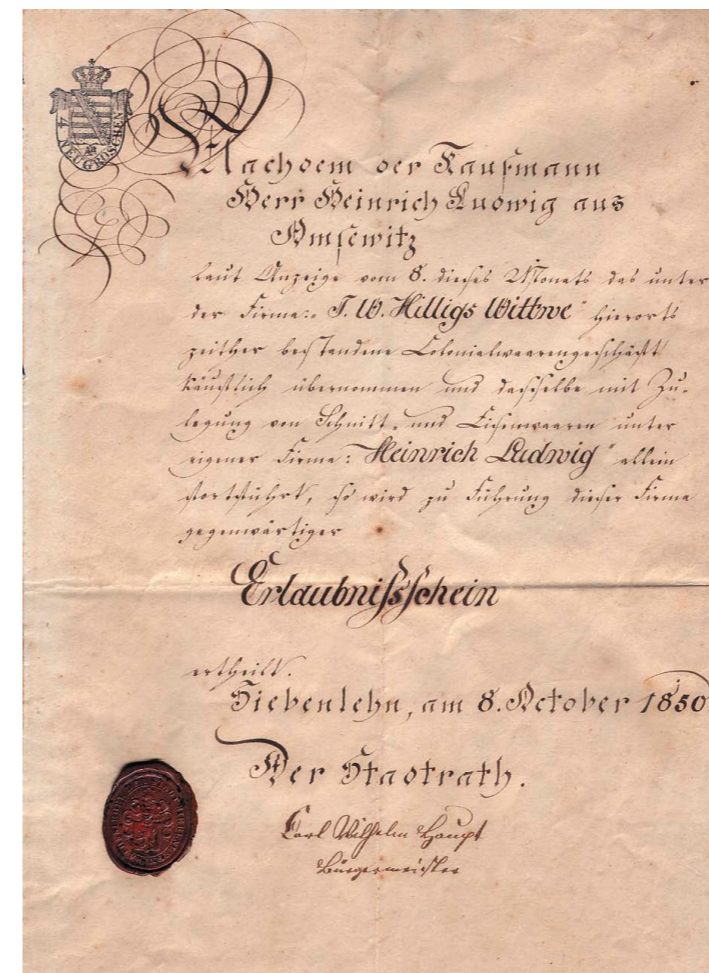 4
NEUGROSCHEN
Nachdem der Kaufmann
Herr Heinrich Ludwig aus
laut Anzeige vom 8. dieses Monats das unter
der Firma: „J. W. Hilligs Wittwe“ hierorts
zeither bestandene Colonialwaarengeschäft
käuflich übernommen und dasselbe mit Zu-
legung von Schnitt- und Eisenwaaren unter
eigener Firma: „Heinrich Ludwig“ allein
fortführt, so wird zu Führung dieser Firma
gegenwärtiger
Erlaubnißschein
ertheilt.
Siebenlehn, am 8. October 1850
Der Stadtrath.
Carl Wilhelm Haupt
Bürgermeister